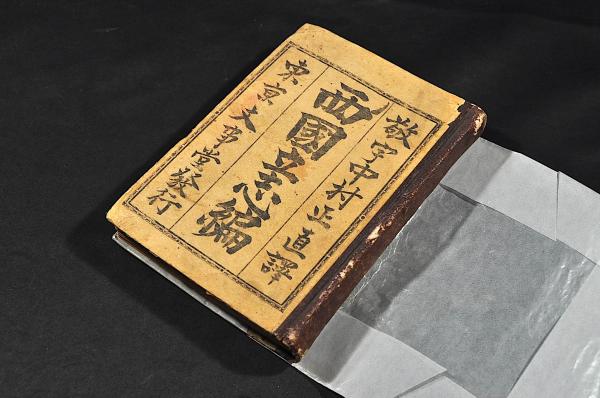 敬宇中村正直譯
西國立志編
東京文事堂發行